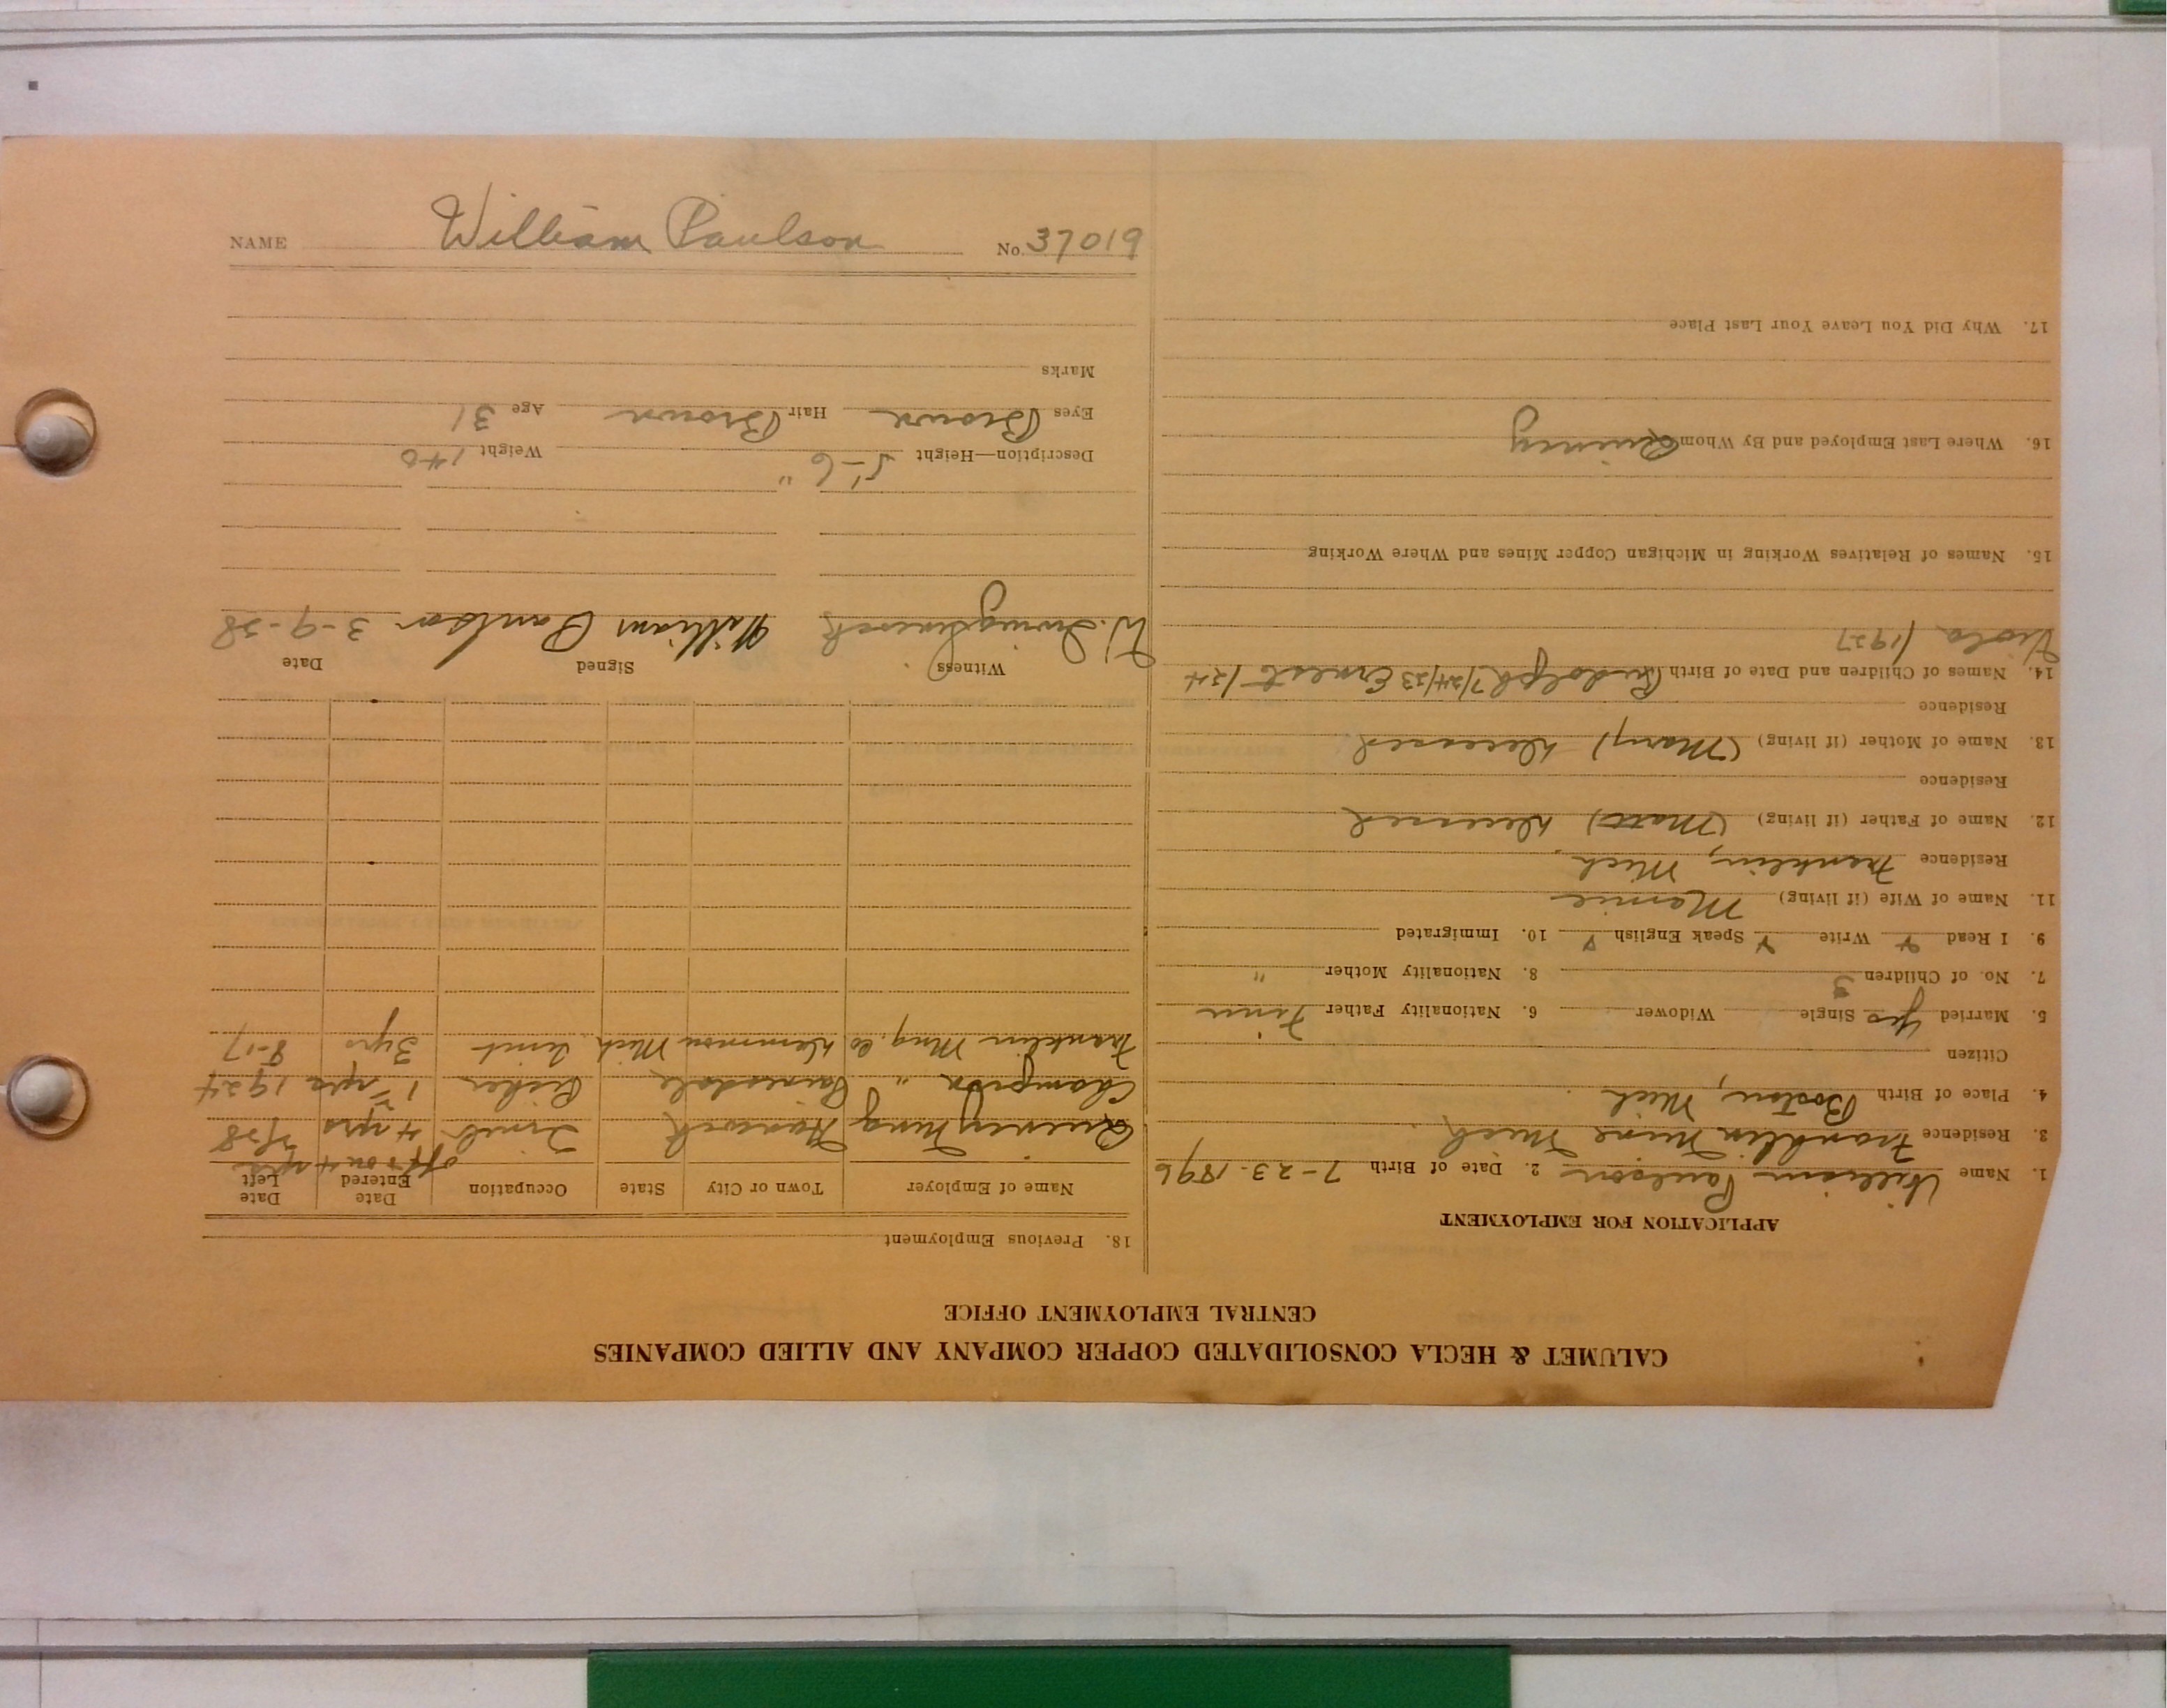 NAME William Paulson No. 37019
CALUMET & HECLA CONSOLIDATED COPPER COMPANY AND ALLIED COMPANIES
CENTRAL EMPLOYMENT OFFICE
APPLICATION FOR EMPLOYMENT
1. Name William Paulson 2. Date of Birth 7-23-1896
3. Residence Franklin Mine Mich.
4. Place of Birth Boston, Mich.
Citizen
5. Married yes Single Widower 6. Nationality Father Finn
7. No. of Children 3 8. Nationality Mother "
9. I Read Write Y Speak English Y 10. Immigrated
11. Name of Wife (if living) Mamie
Residence Franklin, Mich
12. Name of Father (if living) (Matt) deceased
Residence
13. Name of Mother (if living) (Mary) deceased
Residence
14. Names of Children and Date of Birth Rudolph 7/24/23 Ernest /24
Viola /1927
15. Names of Relatives Working in Michigan Copper Mines and Where Working
16. Where Last Employed and By Whom Quincy
17. Why Did You Leave Your Last Place
18. Previous Employment
Name of Employer Town or City State Occupation Date Entered Date Left
off & on 4 yrs
Quincy Mng Hancock 4 yrs
Champion " Painesdale 1 yrs 1924
Franklin Mng. Co Demmon Mich. 3 yrs 8-17
Witness Signed Date
William Paulson 3-9-28
Description—Height 5'-6" Weight 140
Eyes Brown Hair Brown Age 31
Marks